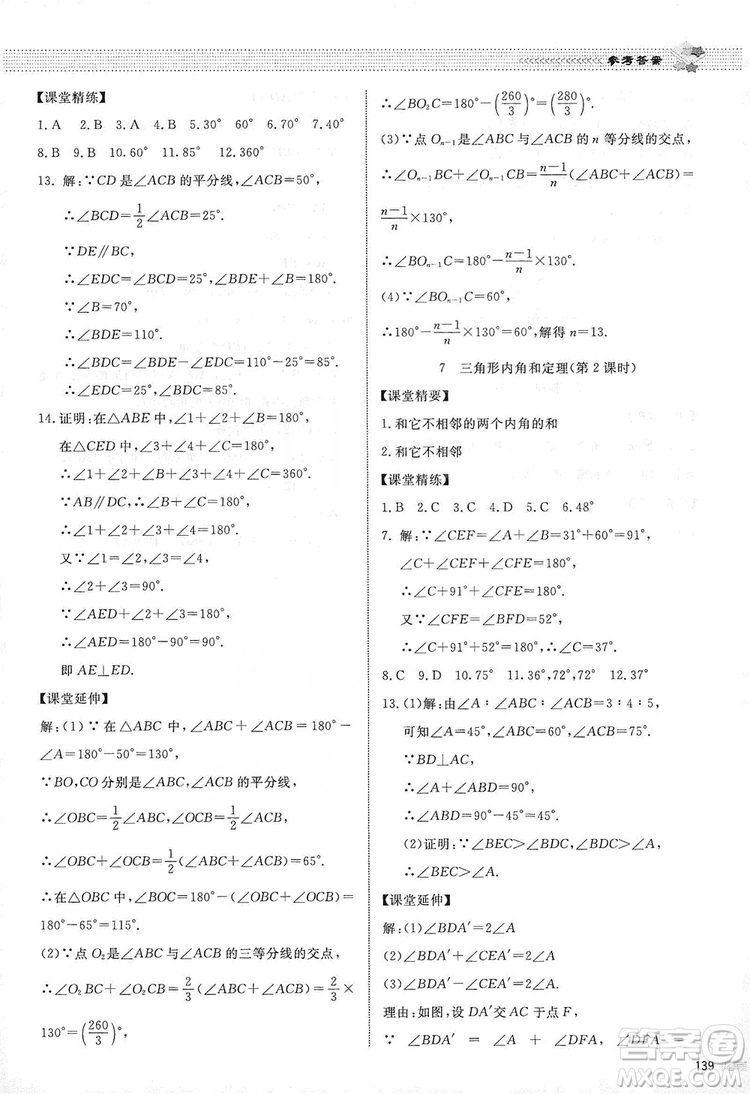 参考答案
【课堂精练】
1.A 2.B 3.A 4.B 5.30° 60° 6.30° 7.40°
8.B 9.B 10.60° 11.85° 12.360°
13. 解:∵CD是∠ACB的平分线,∠ACB=50°,
∴∠BCD=1/2∠ACB=25°.
∵DE∥BC,
∴∠EDC=∠BCD=25°,∠BDE+∠B=180°.
∵∠B=70°,
∴∠BDE=110°.
∴∠BDC=∠BDE-∠EDC=110°-25°=85°.
∴∠EDC=25°,∠BDC=85°.
14. 证明:在△ABE中,∠1+∠2+∠B=180°,
在△CED中,∠3+∠4+∠C=180°,
∴∠1+∠2+∠B+∠3+∠4+∠C=360°.
∵AB∥DC,∴∠B+∠C=180°,
∴∠1+∠2+∠3+∠4=180°.
又∵∠1=∠2,∠3=∠4,
∴∠2+∠3=90°.
∵∠AED+∠2+∠3=180°,
∴∠AED=180°-90°=90°.
即AE⊥ED.
【课堂延伸】
解:(1)∵在△ABC中,∠ABC+∠ACB=180°-
∠A=180°-50°=130°,
∵BO,CO分别是∠ABC,∠ACB的平分线,
∴∠OBC=1/2∠ABC,∠OCB=1/2∠ACB.
∴∠OBC+∠OCB=1/2(∠ABC+∠ACB)=65°.
∴在△OBC中,∠BOC=180°-(∠OBC+∠OCB)=
180°-65°=115°.
(2)∵点O₂是∠ABC与∠ACB的三等分线的交点,
∴∠O₂BC+∠O₂CB=2/3(∠ABC+∠ACB)=2/3×
130°=(260/3)°,
∴∠BO₂C=180°-(260/3)°=(280/3)°.
(3)∵点Oₙ₋₁是∠ABC与∠ACB的n等分线的交点,
∴∠OBₙ₋₁C+∠Oₙ₋₁CB=n-1/n(∠ABC+∠ACB)=
n-1/n×130°,
∴∠BOₙ₋₁C=180°-n-1/n×130°.
(4)∵∠BOₙ₋₁C=60°,
∴180°-n-1/n×130°=60°,解得n=13.
7 三角形内角和定理(第2课时)
【课堂精要】
1.和它不相邻的两个内角的和
2.和它不相邻
【课堂精练】
1.B 2.C 3.C 4.D 5.C 6.48°
7. 解:∵∠CEF=∠A+∠B=31°+60°=91°,
∠C+∠CEF+∠CFE=180°,
∴∠C+91°+∠CFE=180°.
∵∠CFE=∠BFD=52°,
∴∠C+91°+52°=180°.∴∠C=37°.
8.C 9.D 10.75° 11.72°,72°,36° 12.37°
13. (1)解:由∠A∶∠ABC∶∠ACB=3∶4∶5,
可知∠A=45°,∠ABC=60°,∠ACB=75°.
∵BD⊥AC,
∴∠A+∠ABD=90°.
∴∠ABD=90°-45°=45°.
(2)证明:∵∠BEC>∠BDC,∠BDC>∠A,
∴∠BEC>∠A.
【课堂延伸】
解:(1)∠BDA′=2∠A
(2)∠BDA′+∠CEA′=2∠A
(3)∠BDA′-∠CEA′=2∠A
理由:如图,设DA′交AC于点F,
∵ ∠BDA′ = ∠A + ∠DFA, ∠DFA =
139